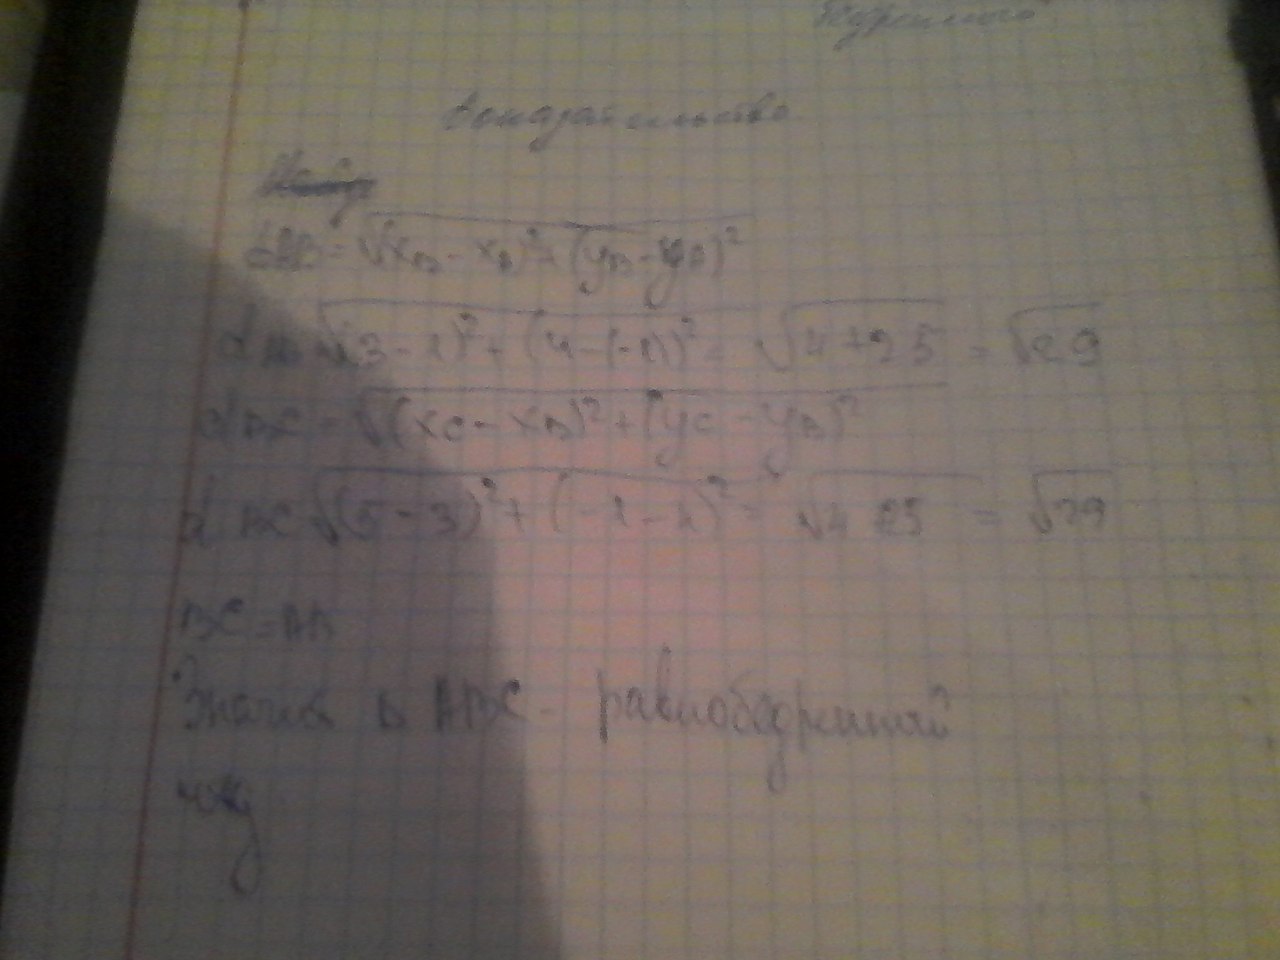 доказательство
dAB = √(xB - xA)² + (yB - yA)²
dAB √(3 - 1)² + (4 - (-1))² = √4 + 25 = √29
dBC = √(xC - xB)² + (yC - yB)²
dBC √(5 - 3)² + (-1 - 4)² = √4 25 = √29
BC = AB
Значит Δ ABC - равнобедренный
чтд